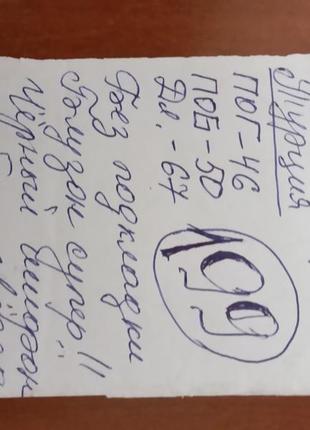 Турция
ПОГ-46
ПОБ-50
Дл.-67
199
Без подкладки
Блузон супер!!
Чёрный